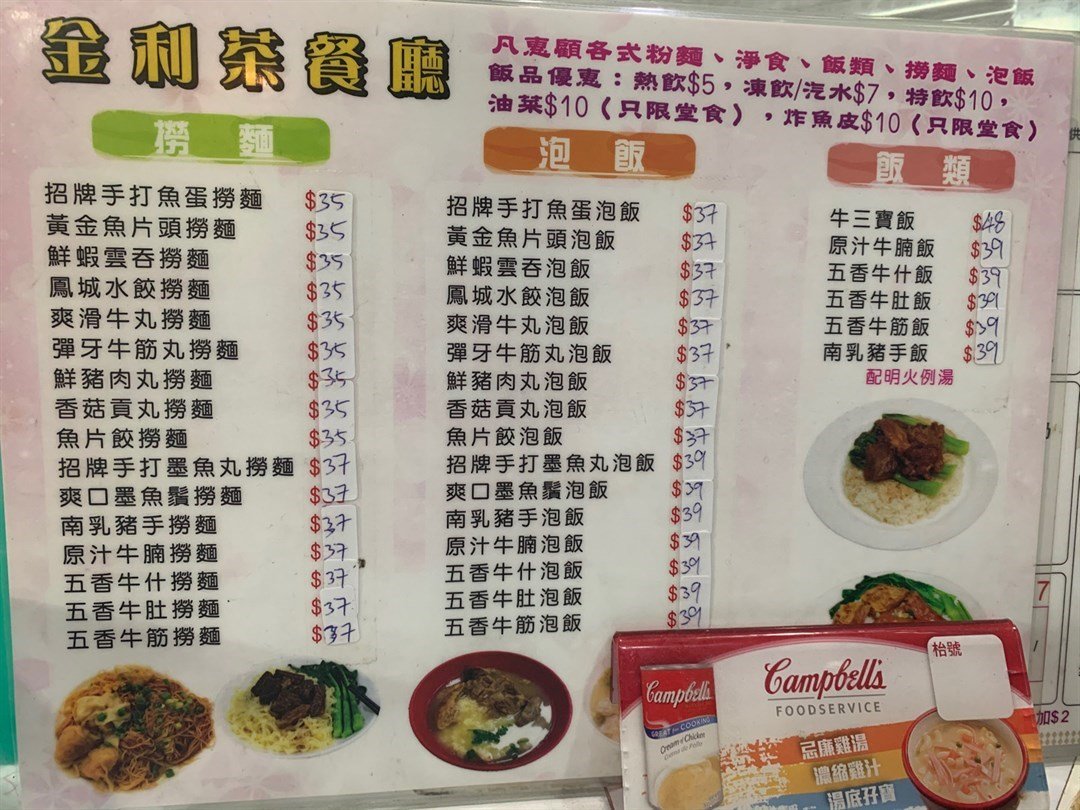 金利茶餐廳
凡惠顧各式粉麵、淨食、飯類、撈麵、泡飯
飯品優惠：熱飲$5，凍飲/汽水$7，特飲$10，
油菜$10（只限堂食），炸魚皮$10（只限堂食）
撈麵
招牌手打魚蛋撈麵 $35
黃金魚片頭撈麵 $35
鮮蝦雲吞撈麵 $35
鳳城水餃撈麵 $35
爽滑牛丸撈麵 $35
彈牙牛筋丸撈麵 $35
鮮豬肉丸撈麵 $35
香菇貢丸撈麵 $35
魚片餃撈麵 $35
招牌手打墨魚丸撈麵 $37
爽口墨魚鬚撈麵 $37
南乳豬手撈麵 $37
原汁牛腩撈麵 $37
五香牛什撈麵 $37
五香牛肚撈麵 $37
五香牛筋撈麵 $37
泡飯
招牌手打魚蛋泡飯 $37
黃金魚片頭泡飯 $37
鮮蝦雲吞泡飯 $37
鳳城水餃泡飯 $37
爽滑牛丸泡飯 $37
彈牙牛筋丸泡飯 $37
鮮豬肉丸泡飯 $37
香菇貢丸泡飯 $37
魚片餃泡飯 $37
招牌手打墨魚丸泡飯 $39
爽口墨魚鬚泡飯 $39
南乳豬手泡飯 $39
原汁牛腩泡飯 $39
五香牛什泡飯 $39
五香牛肚泡飯 $39
五香牛筋泡飯 $39
飯類
牛三寶飯 $48
原汁牛腩飯 $39
五香牛什飯 $39
五香牛肚飯 $39
五香牛筋飯 $39
南乳豬手飯 $39
配明火例湯
供
7
加$2
Campbell's
FOODSERVICE
枱號
Campbell's
GREAT for COOKING
Cream of Chicken
Crema de Pollo
忌廉雞湯
濃縮雞汁
湯底孖寶